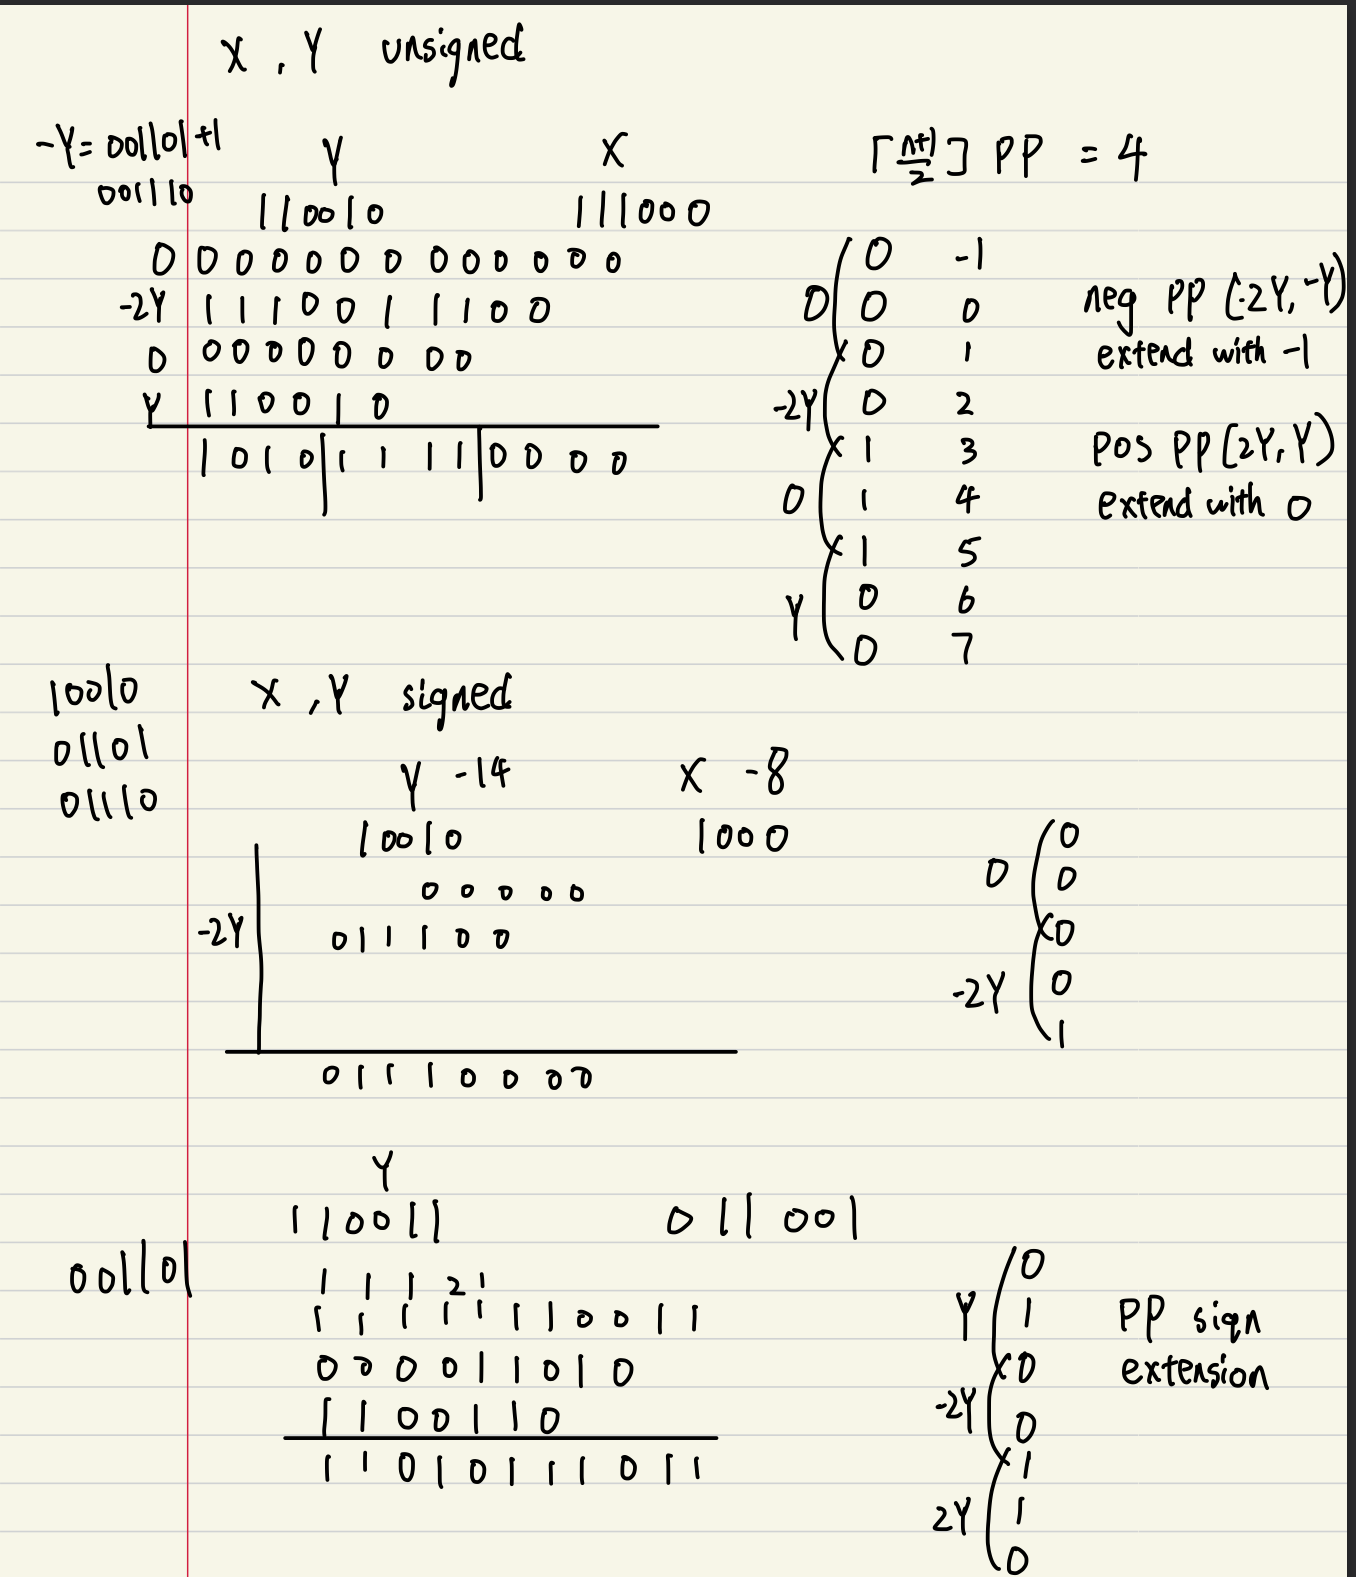 X , Y unsigned
-Y= 001101 +1
001110
Y X
⌈n+1/2⌉ PP = 4
110010 111000
0 0 0 0 0 0 0 0 0 0 0 0 0
-2Y 1 1 1 0 0 1 1 1 0 0
0 0 0 0 0 0 0 0 0
Y 1 1 0 0 1 0
1 0 1 0 | 1 1 1 1 | 0 0 0 0
0 -1
0 0 0
0 1
-2Y 0 2
1 3
0 1 4
1 5
Y 0 6
0 7
neg PP (-2Y, -Y)
extend with -1
pos PP (2Y, Y)
extend with 0
10010
01101
01110
X , Y signed
Y -14 X -8
10010 1000
0 0 0 0 0
-2Y 0 1 1 1 0 0
0 1 1 1 0 0 0 0
0
0 0
0
-2Y 0
1
Y
110011 011001
001101
1 1 1 2 1
1 1 1 1 1 1 1 0 0 1 1
0 0 0 0 1 1 0 1 0
1 1 0 0 1 1 0
1 1 0 1 0 1 1 1 0 1 1
0
Y 1
0
-2Y 0
1
2Y 1
0
PP sign
extension